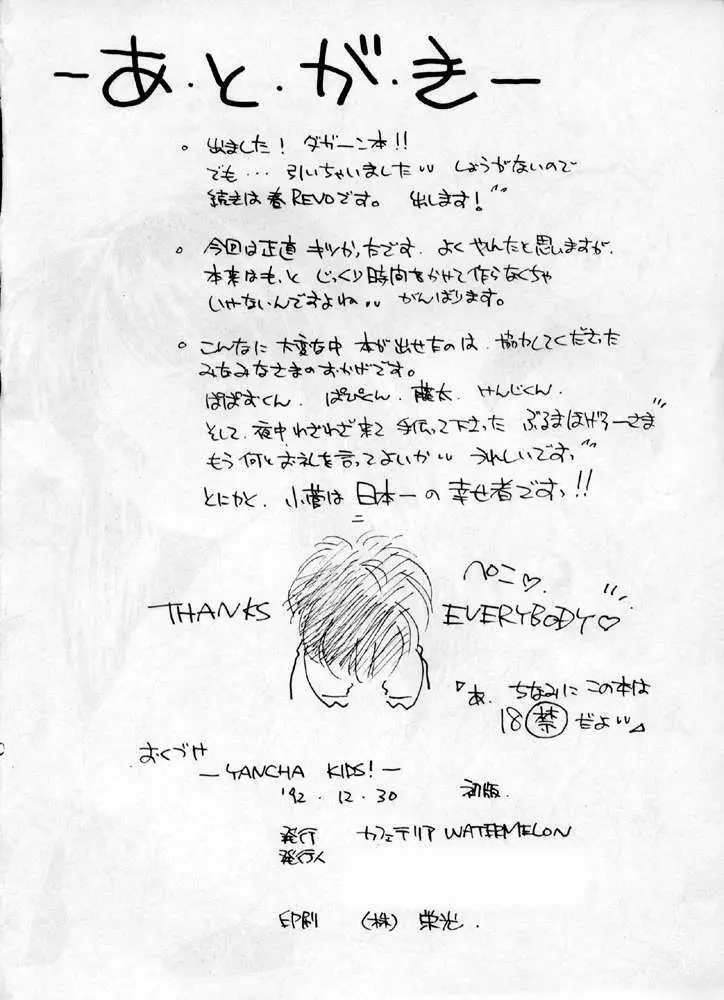 -あ・と・が・き-
。出ました! ダガーン本!!
でも… 引いちゃいました しょうがないので
続きは春REVOです。 出します!
。今回は正直 キツかったです. よくやったと思いますが.
本来はもっと じっくり時間をかせて作らなくちゃ
いけないんですよね がんばります。
。こんなに 大変な中 本が出せたのは 協力してくださった
みなみなさまのおかげです。
ぱぱすくん. ぱぴくん. 藤太. けんじくん.
そして 夜中わざわざ来て 手伝って下さった ぶるまほげろーさま
もう何とお礼を言ってよいか うれしいですっ
とにかく 小菅は 日本一の 幸せ者ですっ!!
ペこ♡
THANKS EVERYBODY♡
『あ. ちなみに この本は
18禁だよ』
おくづけ
-YANCHA KIDS!-
'92.12.30 初版.
発行 カフェテリア WATERMELON
発行人
印刷 (株) 栄光.